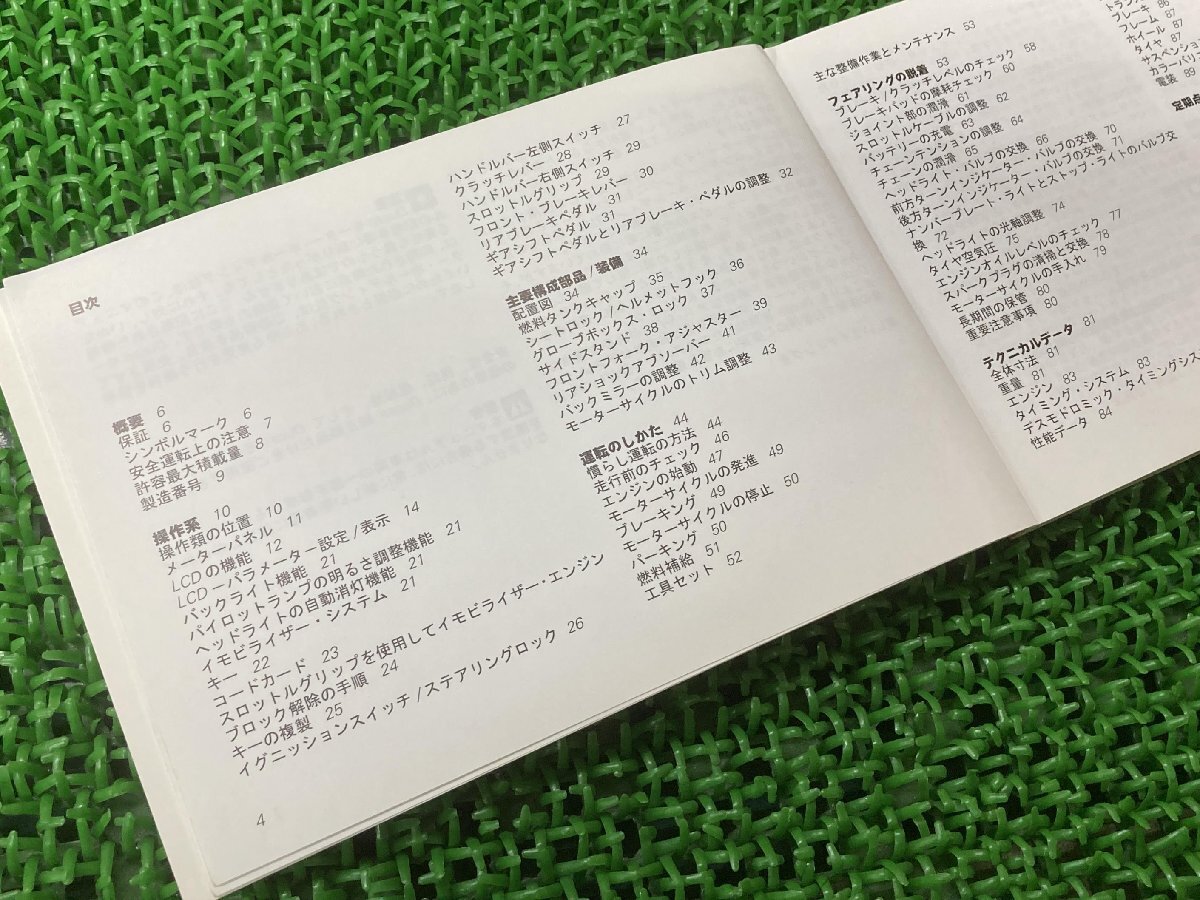 目次
概要 6
保証 6
シンボルマーク 6
安全運転上の注意 7
許容最大積載量 8
製造番号 9
操作系 10
操作類の位置 10
メーターパネル 11
LCDの機能 12
LCD－パラメーター設定/表示 14
バックライト機能 21
パイロットランプの明るさ調整機能 21
ヘッドライトの自動消灯機能 21
イモビライザー・システム 21
キー 22
コードカード 23
スロットルグリップを使用してイモビライザー・エンジン
ブロック解除の手順 24
キーの複製 25
イグニッションスイッチ/ステアリングロック 26
4
ハンドルバー左側スイッチ 27
クラッチレバー 28
ハンドルバー右側スイッチ 29
スロットルグリップ 29
フロント・ブレーキレバー 30
リアブレーキペダル 31
ギアシフトペダル 31
ギアシフトペダルとリアブレーキ・ペダルの調整 32
主要構成部品/装備 34
配置図 34
燃料タンクキャップ 35
シートロック/ヘルメットフック 36
グローブボックス・ロック 37
サイドスタンド 38
フロントフォーク・アジャスター 39
リアショックアブソーバー 41
バックミラーの調整 42
モーターサイクルのトリム調整 43
運転のしかた 44
慣らし運転の方法 44
走行前のチェック 46
エンジンの始動 47
モーターサイクルの発進 49
ブレーキング 49
モーターサイクルの停止 50
パーキング 50
燃料補給 51
工具セット 52
主な整備作業とメンテナンス 53
フェアリングの脱着 53
ブレーキ/クラッチレベルのチェック 58
ブレーキパッドの摩耗チェック 60
ジョイント部の潤滑 61
スロットルケーブルの調整 62
バッテリーの充電 63
チェーンテンションの調整 64
チェーンの潤滑 65
ヘッドライト・バルブの交換 66
前方ターンインジケーター・バルブの交換 70
後方ターンインジケーター・バルブの交換 71
ナンバープレート・ライトとストップ・ライトのバルブ交
換 72
ヘッドライトの光軸調整 74
タイヤ空気圧 75
エンジンオイルレベルのチェック 77
スパークプラグの清掃と交換 78
モーターサイクルの手入れ 79
長期間の保管 80
重要注意事項 80
テクニカルデータ 81
全体寸法 81
重量 81
エンジン 83
タイミング・システム 83
デスモドロミック・タイミングシス
性能データ 84
ブレーキ 86
フレーム 87
ホイール 87
タイヤ 87
サスペンション
カラーバリ
電装 89
定期点